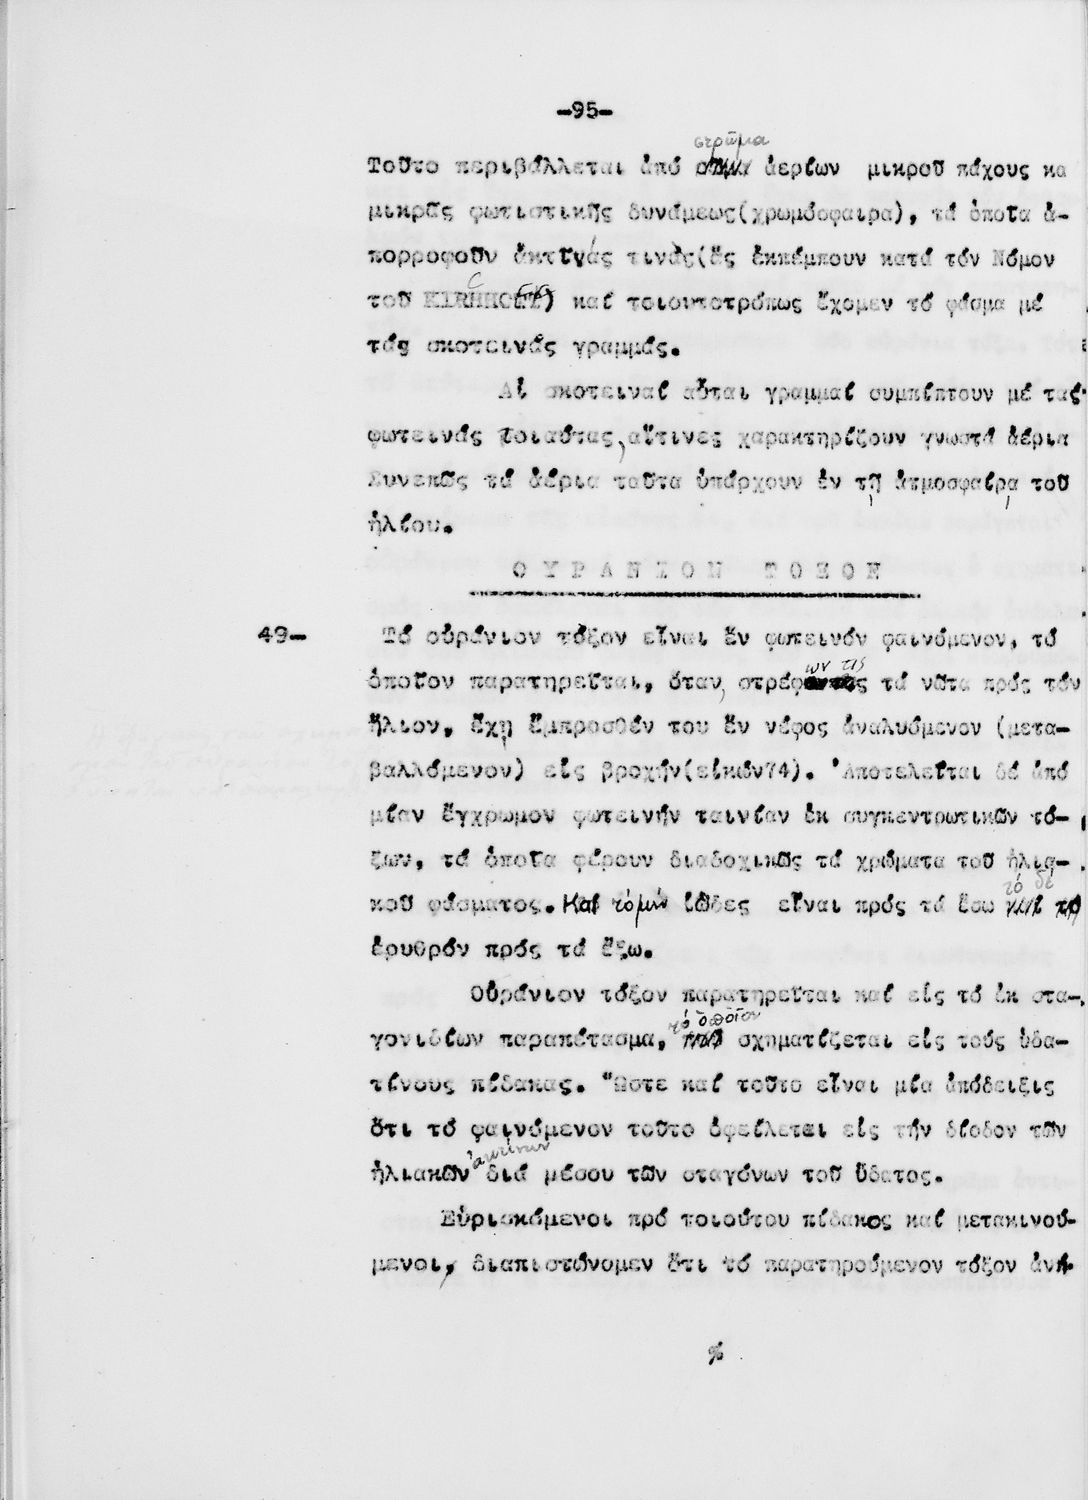 -95-
Τοῦτο περιβάλλεται ἀπό στρῶμα ἀερίων μικροῦ πάχους κα
μικρᾶς φωτιστικῆς δυνάμεως(χρωμόσφαιρα), τά ὁποῖα ἀ-
πορροφοῦν ἀκτῖνάς τινάς(ἅς ἐκπέμπουν κατά τόν Νόμον
τοῦ KIRCHHOFF) καί τοιουτοτρόπως ἔχομεν τό φάσμα μέ
τάς σκοτεινάς γραμμάς.
Αἱ σκοτειναί αὗται γραμμαί συμπίπτουν μέ τάς
φωτεινάς τοιαύτας, αἵτινες χαρακτηρίζουν γνωστά ἀέρια
Συνεπῶς τά ἀέρια ταῦτα ὑπάρχουν ἐν τῇ ἀτμοσφαίρᾳ τοῦ
ἡλίου.
ΟΥΡΑΝΙΟΝ ΤΟΞΟΝ
49- Τό οὐράνιον τόξον εἶναι ἕν φωτεινόν φαινόμενον, τό
ὁποῖον παρατηρεῖται, ὅταν, στρέφων τις τά νῶτα πρός τόν
ἥλιον, ἔχῃ ἔμπροσθέν του ἕν νέφος ἀναλυόμενον (μετα-
βαλλόμενον) εἰς βροχήν(εἰκών74). Ἀποτελεῖται δέ ἀπό
μίαν ἔγχρωμον φωτεινήν ταινίαν ἐκ συγκεντρωτικῶν τό-
ξων, τά ὁποῖα φέρουν διαδοχικῶς τά χρώματα τοῦ ἡλια-
κοῦ φάσματος. Καί τό μέν ἰῶδες εἶναι πρός τά ἔσω τό δέ
ἐρυθρόν πρός τά ἔξω.
Οὐράνιον τόξον παρατηρεῖται καί εἰς τό ἐκ στα-
γονιδίων παραπέτασμα, τό ὁποῖον σχηματίζεται εἰς τούς ὑδα-
τίνους πίδακας. Ὥστε καί τοῦτο εἶναι μία ἀπόδειξις
ὅτι τό φαινόμενον τοῦτο ὀφείλεται εἰς τήν δίοδον τῶν
ἡλιακῶν ἀκτίνων διά μέσου τῶν σταγόνων τοῦ ὕδατος.
Εὑρισκόμενοι πρό τοιούτου πίδακος καί μετακινού-
μενοι, διαπιστώνομεν ὅτι τό παρατηρούμενον τόξον ἀνή-
%